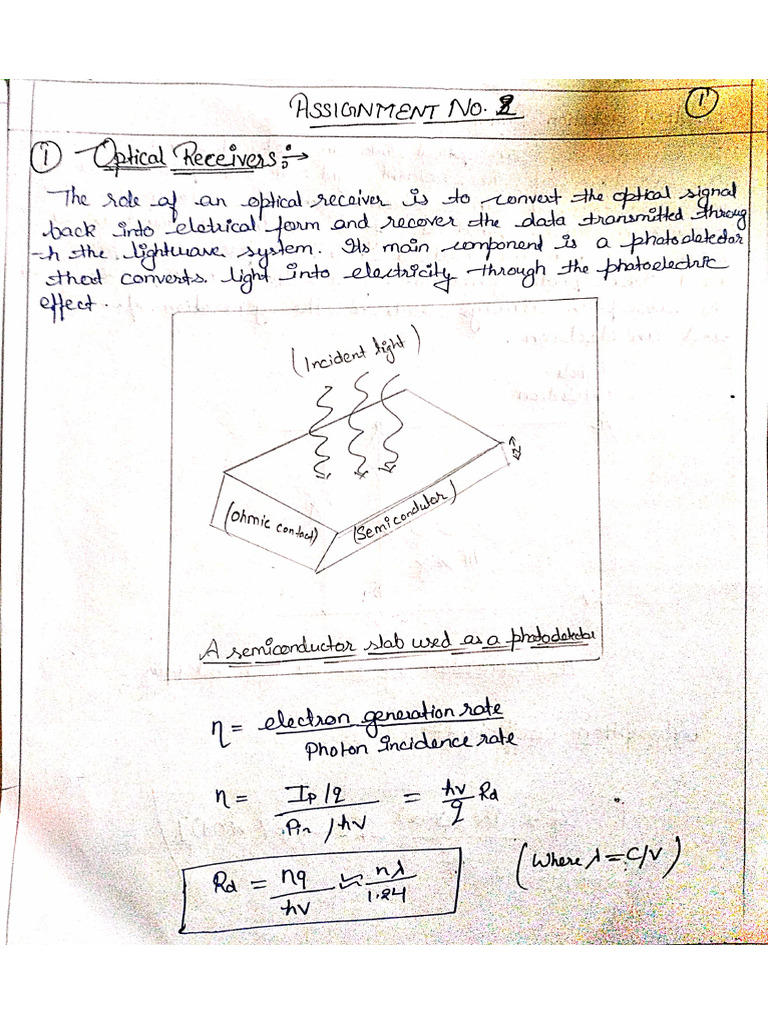 ASSIGNMENT NO. 2
1
① Optical Receivers :→
The role of an optical receiver is to convert the optical signal
back into eletrical form and recover the data transmitted throug
-h the lightwave system. Its main component is a photodetector
that converts light into electricity through the photoelectric
effect.
(Incident light)
(Ohmic contact)
(Semicondutor)
A semiconductor slab used as a photodetector
η = electron generation rate / Photon incidence rate
η = (Ip/q) / (Pin/hν) = (hν/q) Rd
Rd = ηq/hν ≃ ηλ/1.24
(Where λ = C/ν)